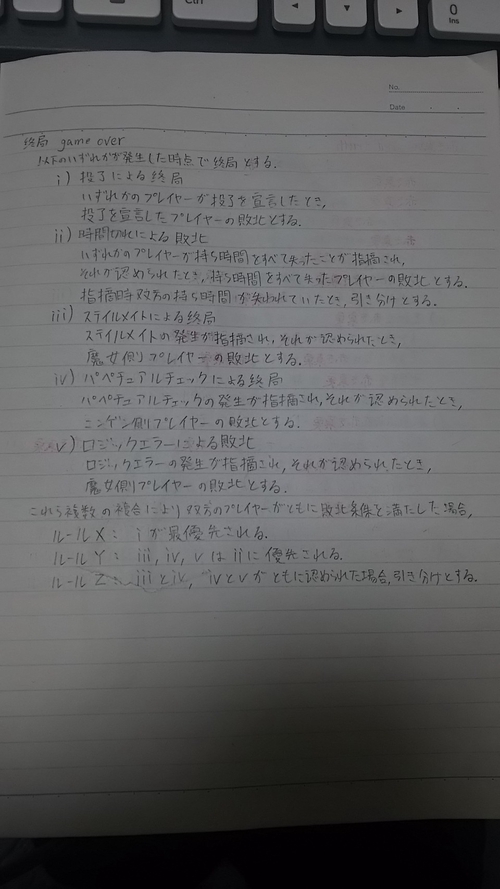 Ctrl
0
Ins
No.
Date
終局 game over
以下のいずれかが発生した時点で終局とする.
i) 投了による終局
いずれかのプレイヤーが投了を宣言したとき,
投了を宣言したプレイヤーの敗北とする.
ii) 時間切れによる敗北
いずれかのプレイヤーが持ち時間をすべて失ったことが指摘され,
それが認められたとき, 持ち時間をすべて失ったプレイヤーの敗北とする.
指摘時双方の持ち時間が失われていたとき, 引き分けとする.
iii) ステイルメイトによる終局
ステイルメイトの発生が指摘され, それが認められたとき,
魔女側プレイヤーの敗北とする.
iv) パペチュアルチェックによる終局
パペチュアルチェックの発生が指摘され, それが認められたとき,
ニンゲン側プレイヤーの敗北とする.
v) ロジックエラーによる敗北
ロジックエラーの発生が指摘され, それが認められたとき,
魔女側プレイヤーの敗北とする.
これら複数の複合により双方のプレイヤーがともに敗北条件を満たした場合,
ルールX: iが最優先される.
ルールY: iii, iv, vはiiに優先される.
ルールZ: iiiとiv, ivとvがともに認められた場合, 引き分けとする.